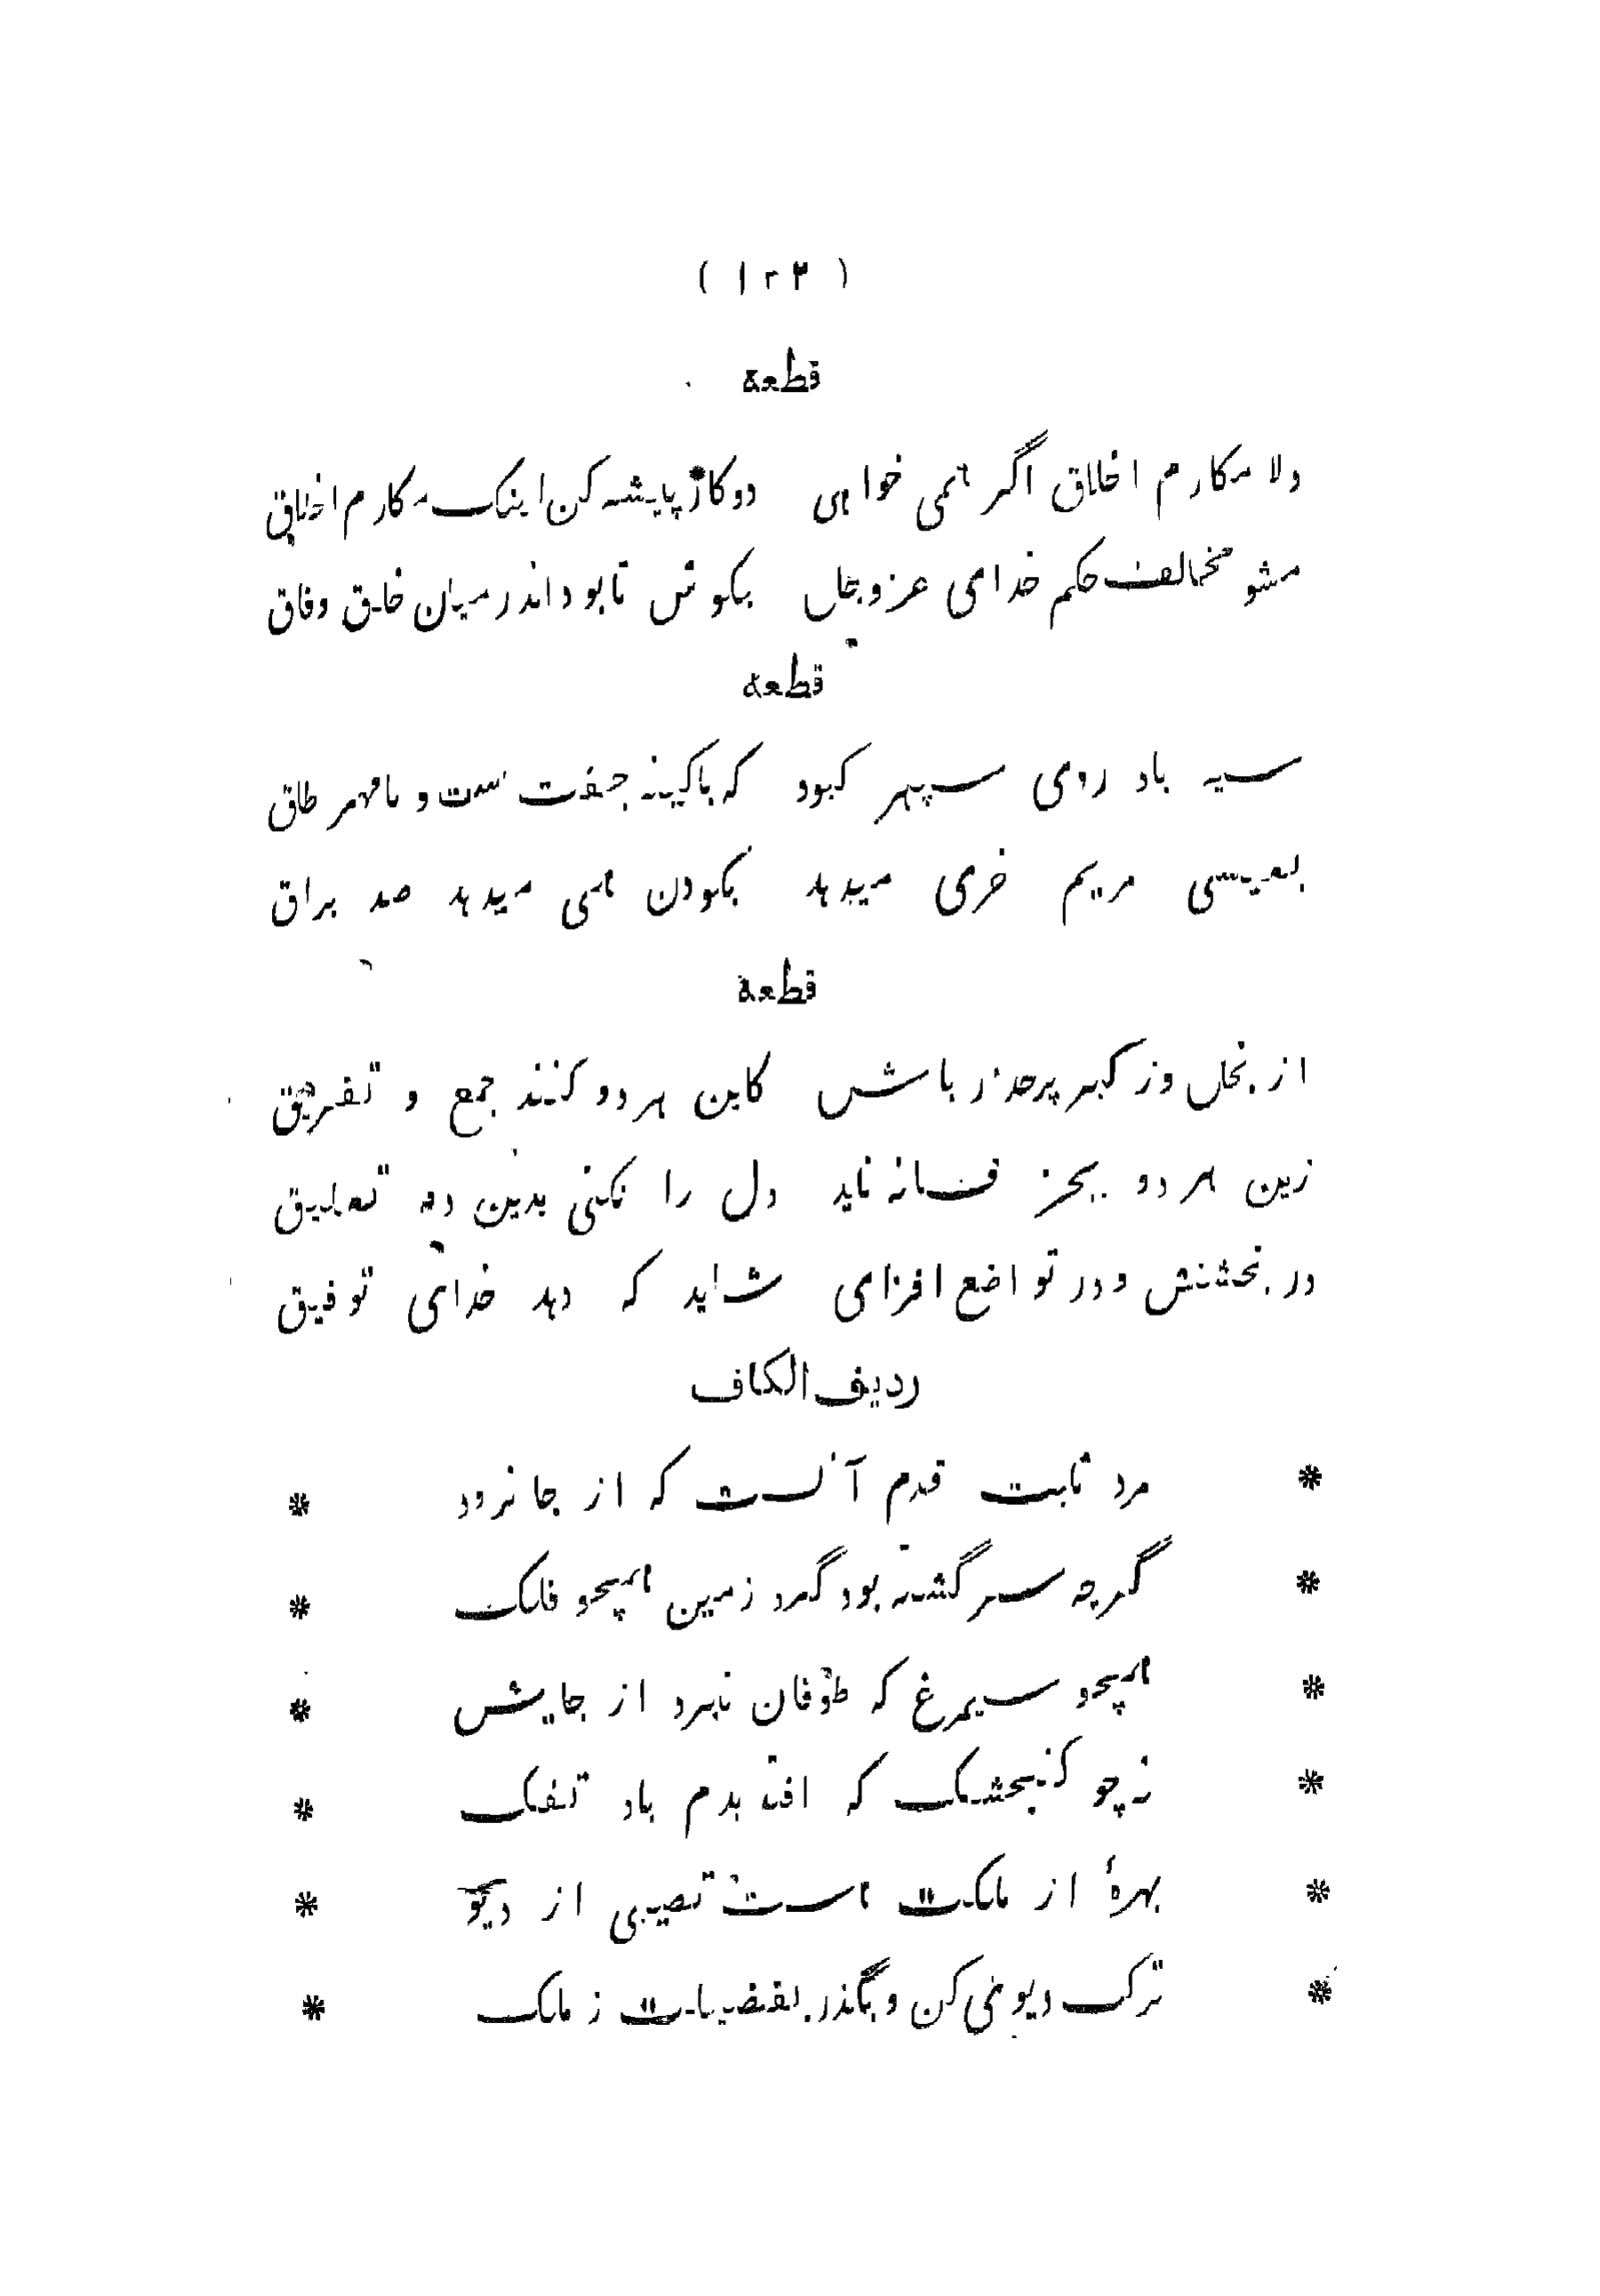 ( ۱۲۳ )
قطعة
دلا مکارم اخلاق اگر همی خواهی دو کار پیشه کن اینک مکارم اخلاق
مشو مخالف حکم خدای عز و جل بکوش تا بود اندر میان خلق وفاق
قطعه
سیه باد روی سپهر کبود که باکینه جفت ست و بامهر طاق
بعیسی مریم خری میدهد بکودن همی میدهد صد براق
قطعة
از بخل وز کبر پرحذر باش کاین هر دو کنند جمع و تفریق
زین هر دو بجز فسانه ناید دل را نکنی بدین دو تعلیق
در بخشش و در تواضع افزای شاید که دهد خدای توفیق
ردیف الکاف
* مرد ثابت قدم آنست که از جا نرود *
* گرچه سرگشته بود گرد زمین همچو فلک *
* همچو سیمرغ که طوفان نبرد از جایش *
* نه چو کنجشک که افتد بدم باد تفک *
* بهرهٔ از ملکت هست نصیبی از دیو *
* ترک دیوی کن و بگذر بفضیلت ز ملک *